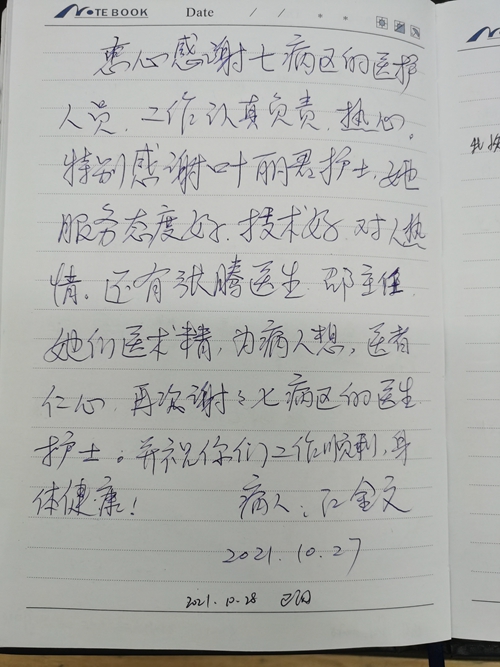 NOTE BOOK Date / / * *
衷心感谢七病区的医护
人员、工作认真负责、热心。
特别感谢叶丽君护士、她
服务态度好、技术好、对人热
情。还有张腾医生、邵主任
她们医术精，为病人想，医者
仁心、再次谢谢七病区的医生
护士。并祝你们工作顺利，身
体健康！
病人：江金文
2021.10.27
2021.10.28 已阅
NOTE